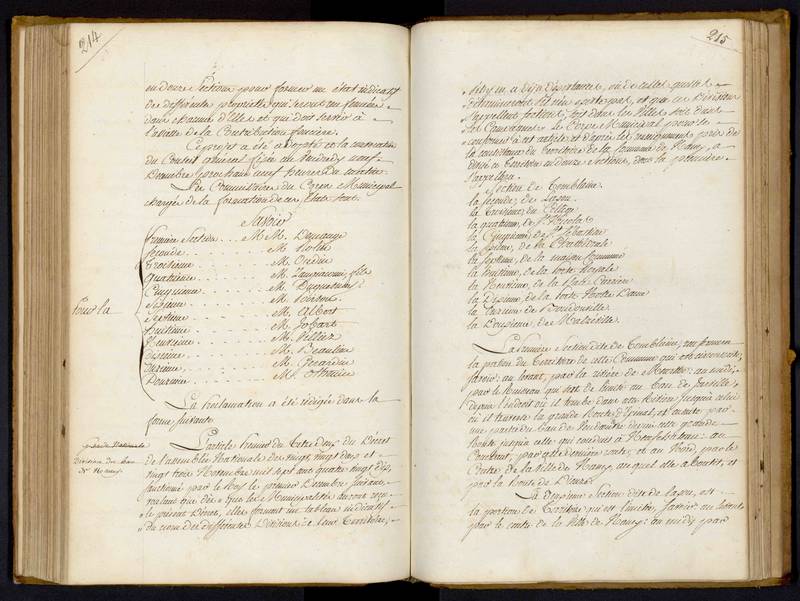 214
en douze Sections pour former un état indicatif
des différentes propriétés qui seront ou foncière
dans chacune d'Elles et qui doit servir à
l'assiette de la Contribution foncière.
Ce projet a été adopté et la convocation
du Conseil général fixée au Vendredy neuf
Décembre prochain neuf heures du matin
Les Commissaires du Corps Municipal
chargés de la formation de ces Etats sont.
Savoir
Pour la
Première Section . . . M.M.
Seconde . . . M.
Troisième . . . M.
Quatrième . . . M. fils
Cinquième . . . M.
Sixième . . . M.
Septième . . . M. Albert
huitième . . . M. Jobart
Neuvième . . . M. Villiez
Dixième . . . M. Beaulieu
Onzième . . . M. Gérardin
Douzième . . . M.
La Proclamation a été rédigée dans la
forme suivante
Division du ban
de Nancy
L'article Premier du Titre deux du Décret
de l'assemblée Nationale des vingt, vingt deux et
vingt trois Novembre mil sept cent quatre vingt dix,
sanctionné par le Roy le premier Décembre suivant,
voulant que dès que les Municipalités auront reçu
le présent Décret, elles forment un tableau indicatif
du nom des différentes Divisions de leur Territoire,
215
s'il y en a déjà d'existantes, ou de celles qu'elles
détermineront s'il n'en existe pas, et que ces Divisions
s'appellent Sections, soit dans les Villes soit dans
les Campagnes, le Corps Municipal pour se
conformer à cet article et d'après les renseignements pris de
la consistance du territoire de la Commune de Nancy, a
divisé ce territoire en douze Sections, dont la première
s'appellera.
Section de Tomblaine.
la seconde, de
la Troisième, du Collège
la quatrième, de St. Nicolas
la Cinquième, de St. Sébastien
la Sixième, de la Cathédrale
la septième, de la maison Commune
la huitième, de la porte Royale
la Neuvième, de la place Carrière
la Dixième, de la porte Notre Dame
la Onzième de Boudonville
la Douzième, de Malzéville.
La Première Section dite de Tomblaine, renfermera
la portion du Territoire de cette Commune qui est circonscrite,
savoir: au levant, par la rivière de Meurthe: au midi,
par le Ruisseau qui sert de limite au Ban de Jarville,
depuis l'Endroit où il tombe dans cette Rivière jusqu'à celui
où il traverse la grande Route d'Epinal, et ensuite par
une partie du ban de Vandoeuvre depuis cette grande
Route jusqu'à celle qui conduit à Neufchâteau: au
Couchant, par cette dernière route; et au Nord, par le
Centre de la Ville de Nancy, auquel elle aboutit, et
par la Route de
La Deuxième Section dite de est
la portion de Territoire qui est limitée, savoir: au levant
par le centre de la Ville de Nancy: au midy par